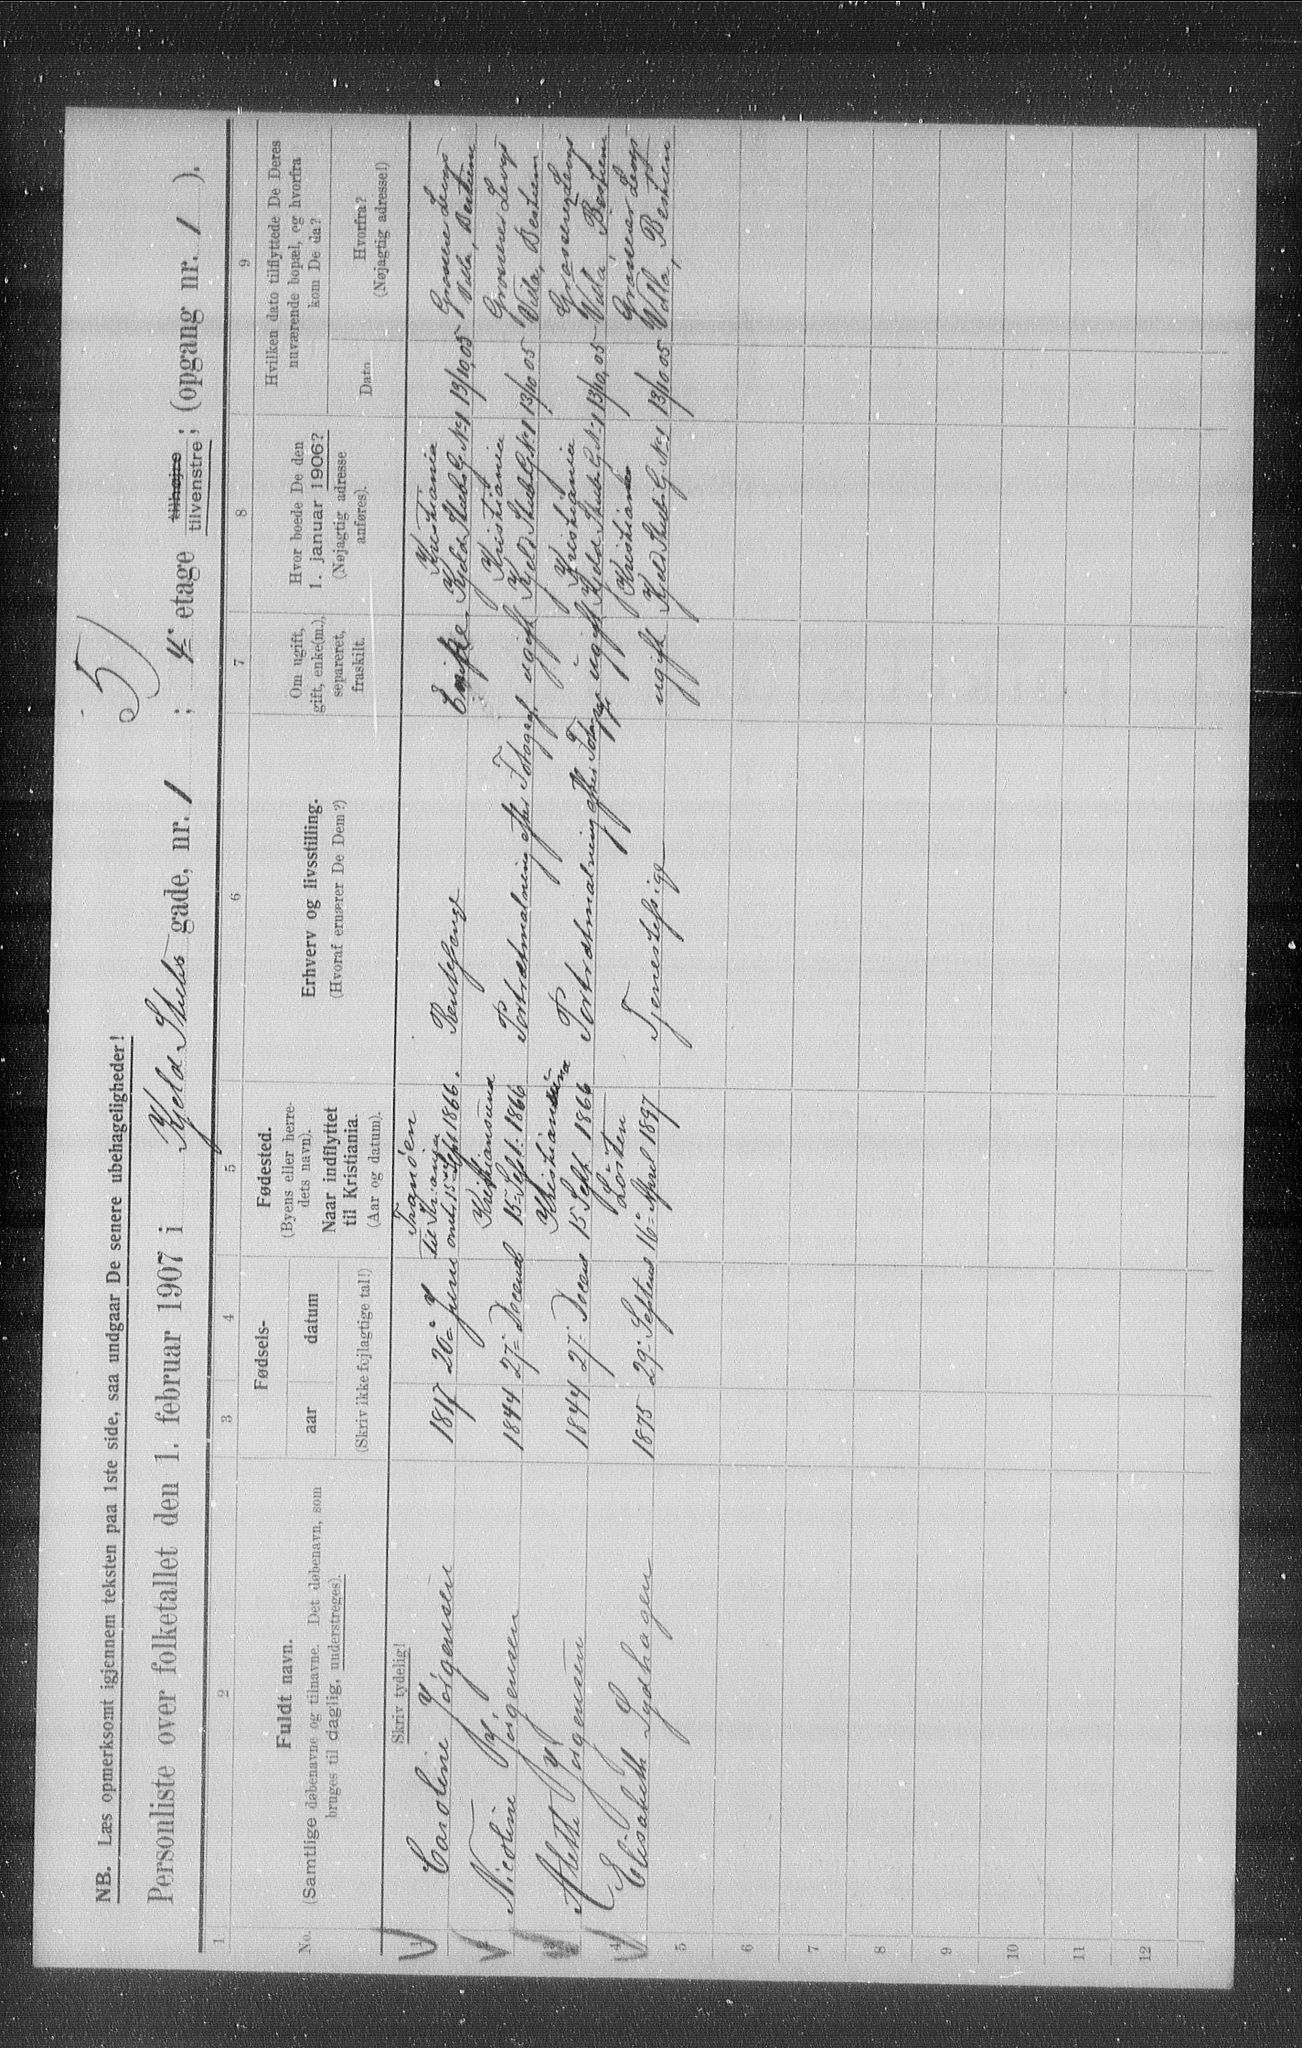 5)
NB. Læs opmerksomt igjennem teksten paa 1ste side, saa undgaar De senere ubehageligheder!
Personliste over folketallet den 1. februar 1907 i Kjeld Stubs gade, nr. 1 ; 4de etage tilhøjre tilvenstre ; (opgang nr. 1 ).
1 2 3 4 5 6 7 8 9
No.
Fuldt navn.
(Samtlige døbenavne og tilnavne. Det døbenavn, som
bruges til daglig, understreges).
Fødsels-
aar datum
(Skriv ikke fejlagtige tal!)
Fødested.
(Byens eller herre-
dets navn).
Naar indflyttet
til Kristiania.
(Aar og datum).
Erhverv og livsstilling.
(Hvoraf ernærer De Dem?)
Om ugift,
gift, enke(m.),
separeret,
fraskilt.
Hvor boede De den
1. januar 1906?
(Nøjagtig adresse
anføres).
Hvilken dato tilflyttede De Deres
nuværende bopæl, og hvorfra
kom De da?
Dato
Hvorfra?
(Nøjagtig adresse!)
Skriv tydelig!
1 Caroline Jørgensen 1817 20de Juni til omt. 15 Sept 1866. Enke. Kristiania Kjeld Stubs G. No 1 13/10 05 Villa, Bestum
2 Nicoline Jørgensen 1844 27 Kristiansund 15 Sept. 1866 Portrætmalning efter Fotograf ugift Kristiania Kjeld Stubs G. No 1 13/10 05 Villa, Bestum
3 Alette Jørgensen 1844 27 Kristiansund 15 Sept 1866 Portrætmalning efter ugift Kristiania Kjeld Stubs G. No 1 13/10 05 Villa, Bestum
4 Elisabeth Sydhagen 1875 29 Septemb Løiten 16de April 1897 ugift Kristiania Kjeld Stubs G. No 1 13/10 05 Villa, Bestum
5
6
7
8
9
10
11
12